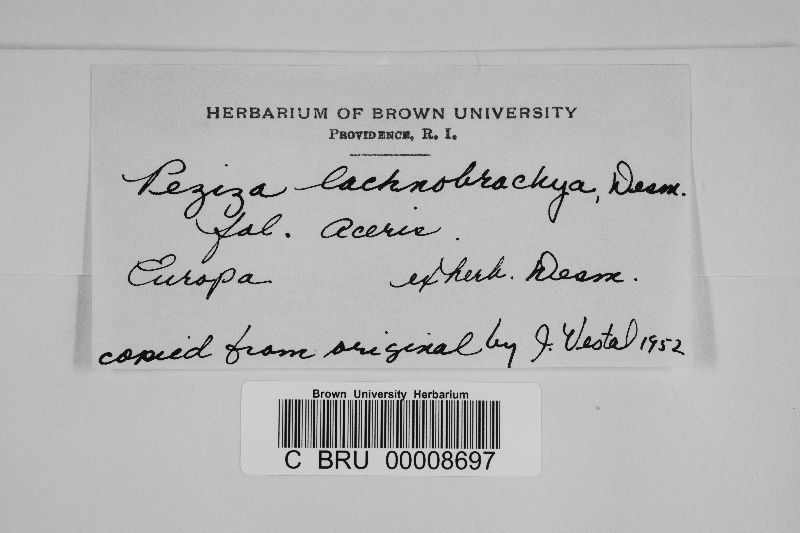 HERBARIUM OF BROWN UNIVERSITY
PROVIDENCE, R. I.
Peziza lachnobrachya, Desm.
fol. Aceris.
Europa ex herb. Desm.
copied from original by J. Vestal 1952
Brown University Herbarium
C BRU 00008697